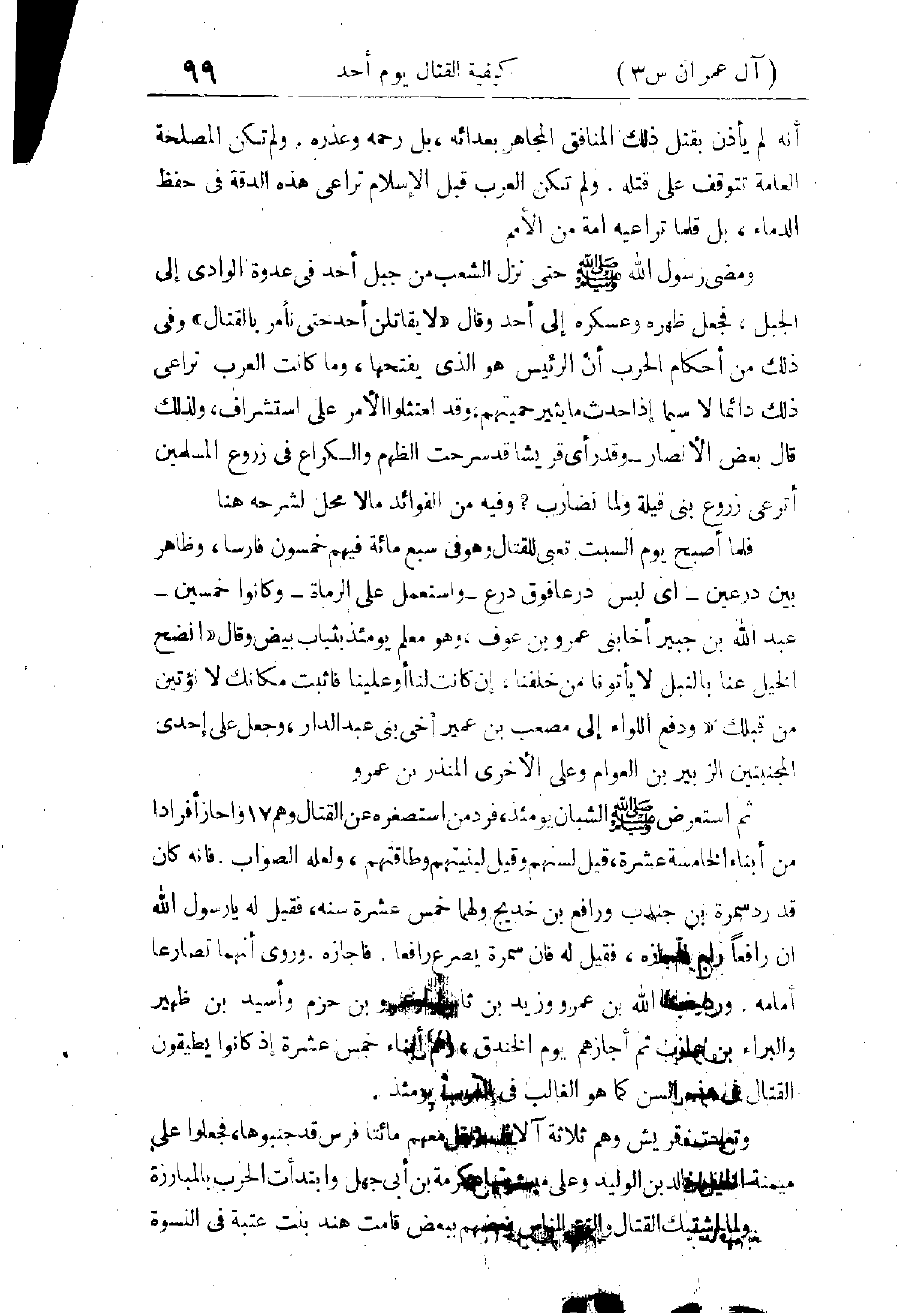 (آل عمران س٣) كيفية القتال يوم أحد ٩٩
أنه لم يأذن بقتل ذلك المنافق المجاهر بعدائه ، بل رحمه وعذره . ولم تكن المصلحة
العامة تتوقف على قتله . ولم تكن العرب قبل الإسلام تراعى هذه الدقة فى حفظ
الدماء ، بل قلما تراعيه امة من الأمم
ومضى رسول الله ﷺ حتى نزل الشعب من جبل أحد فى عدوة الوادى إلى
الجبل ، فجعل ظهره وعسكره إلى أحد وقال «لا يقاتلن أحد حتى نأمر بالقتال» وفى
ذلك من أحكام الحرب أن الرئيس هو الذى يفتحها ، وما كانت العرب تراعى
ذلك دائما لا سيما إذا حدث ما يثير حميتهم ، وقد امتثلوا الأمر على استشراف ، ولذلك
قال بعض الأنصار ـ وقد رأى قريشا قد سرحت الظهر والكراع فى زروع المسلمين
أترعى زروع بنى قيلة ولما نضارب ؟ وفيه من الفوائد مالا محل لشرحه هنا
فلما أصبح يوم السبت تعبى للقتال وهو فى سبع مائة فيهم خمسون فارسا ، وظاهر
بين درعين ـ اى لبس درعا فوق درع ـ واستعمل على الرماة ـ وكانوا خمسين ـ
عبد الله بن جبير أخا بنى عمرو بن عوف ، وهو معلم يومئذ بثياب بيض وقال «انضح
الخيل عنا بالنبل لا يأتونا من خلفنا ، إن كانت لنا أو علينا فاثبت مكانك لا نؤتين
من قبلك » ودفع اللواء إلى مصعب بن عمير أخى بنى عبد الدار ، وجعل على إحدى
المجنبتين الزبير بن العوام وعلى الأخرى المنذر بن عمرو
ثم استعرض ﷺ الشبان يومئذ ، فرد من استصغره عن القتال وهم ١٧ واجاز أفرادا
من أبناء الخامسة عشرة ، قيل لسنهم وقيل لبنيتهم وطاقتهم ، ولعله الصواب . فانه كان
قد رد سمرة بن جندب ورافع بن خديج ولهما خمس عشرة سنه ، فقيل له يا رسول الله
ان رافعاً رام فأجازه ، فقيل له فان سمرة يصرع رافعا . فاجازه . وروى أنهما تصارعا
أمامه . ورد عبد الله بن عمرو وزيد بن ثابت وعمرو بن حزم وأسيد بن ظهير
والبراء بن عازب ثم أجازهم يوم الخندق ، وهم أبناء خمس عشرة إذ كانوا يطيقون
القتال فى هذه السن كما هو الغالب فى يومئذ .
وتعبت قريش وهم ثلاثة آلاف معهم مائتا فرس قد جنبوها ، فجعلوا على
ميمنة خالد بن الوليد وعلى ميسرتها عكرمة بن أبى جهل وابتدأت الحرب بالمبارزة
ولما اشتبك القتال والتقى الناس بعضهم ببعض قامت هند بنت عتبة فى النسوة